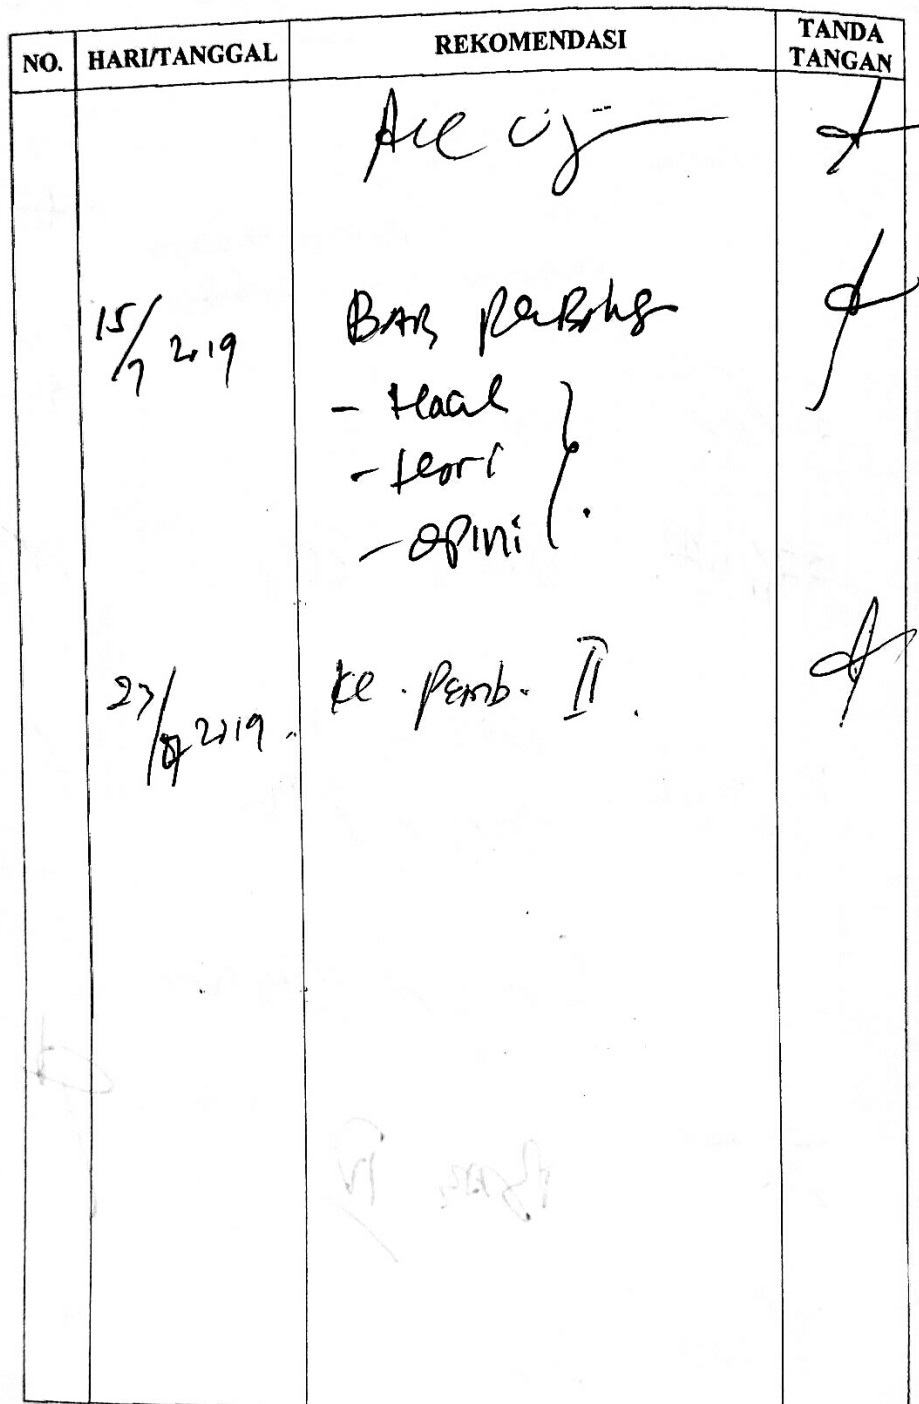 NO. HARI/TANGGAL REKOMENDASI TANDA TANGAN
Acc Uji
15/7 2019 BAB
- Hasil
- teori
- Opini
23/ 2019. Ke. Pemb. II.
BAB IV